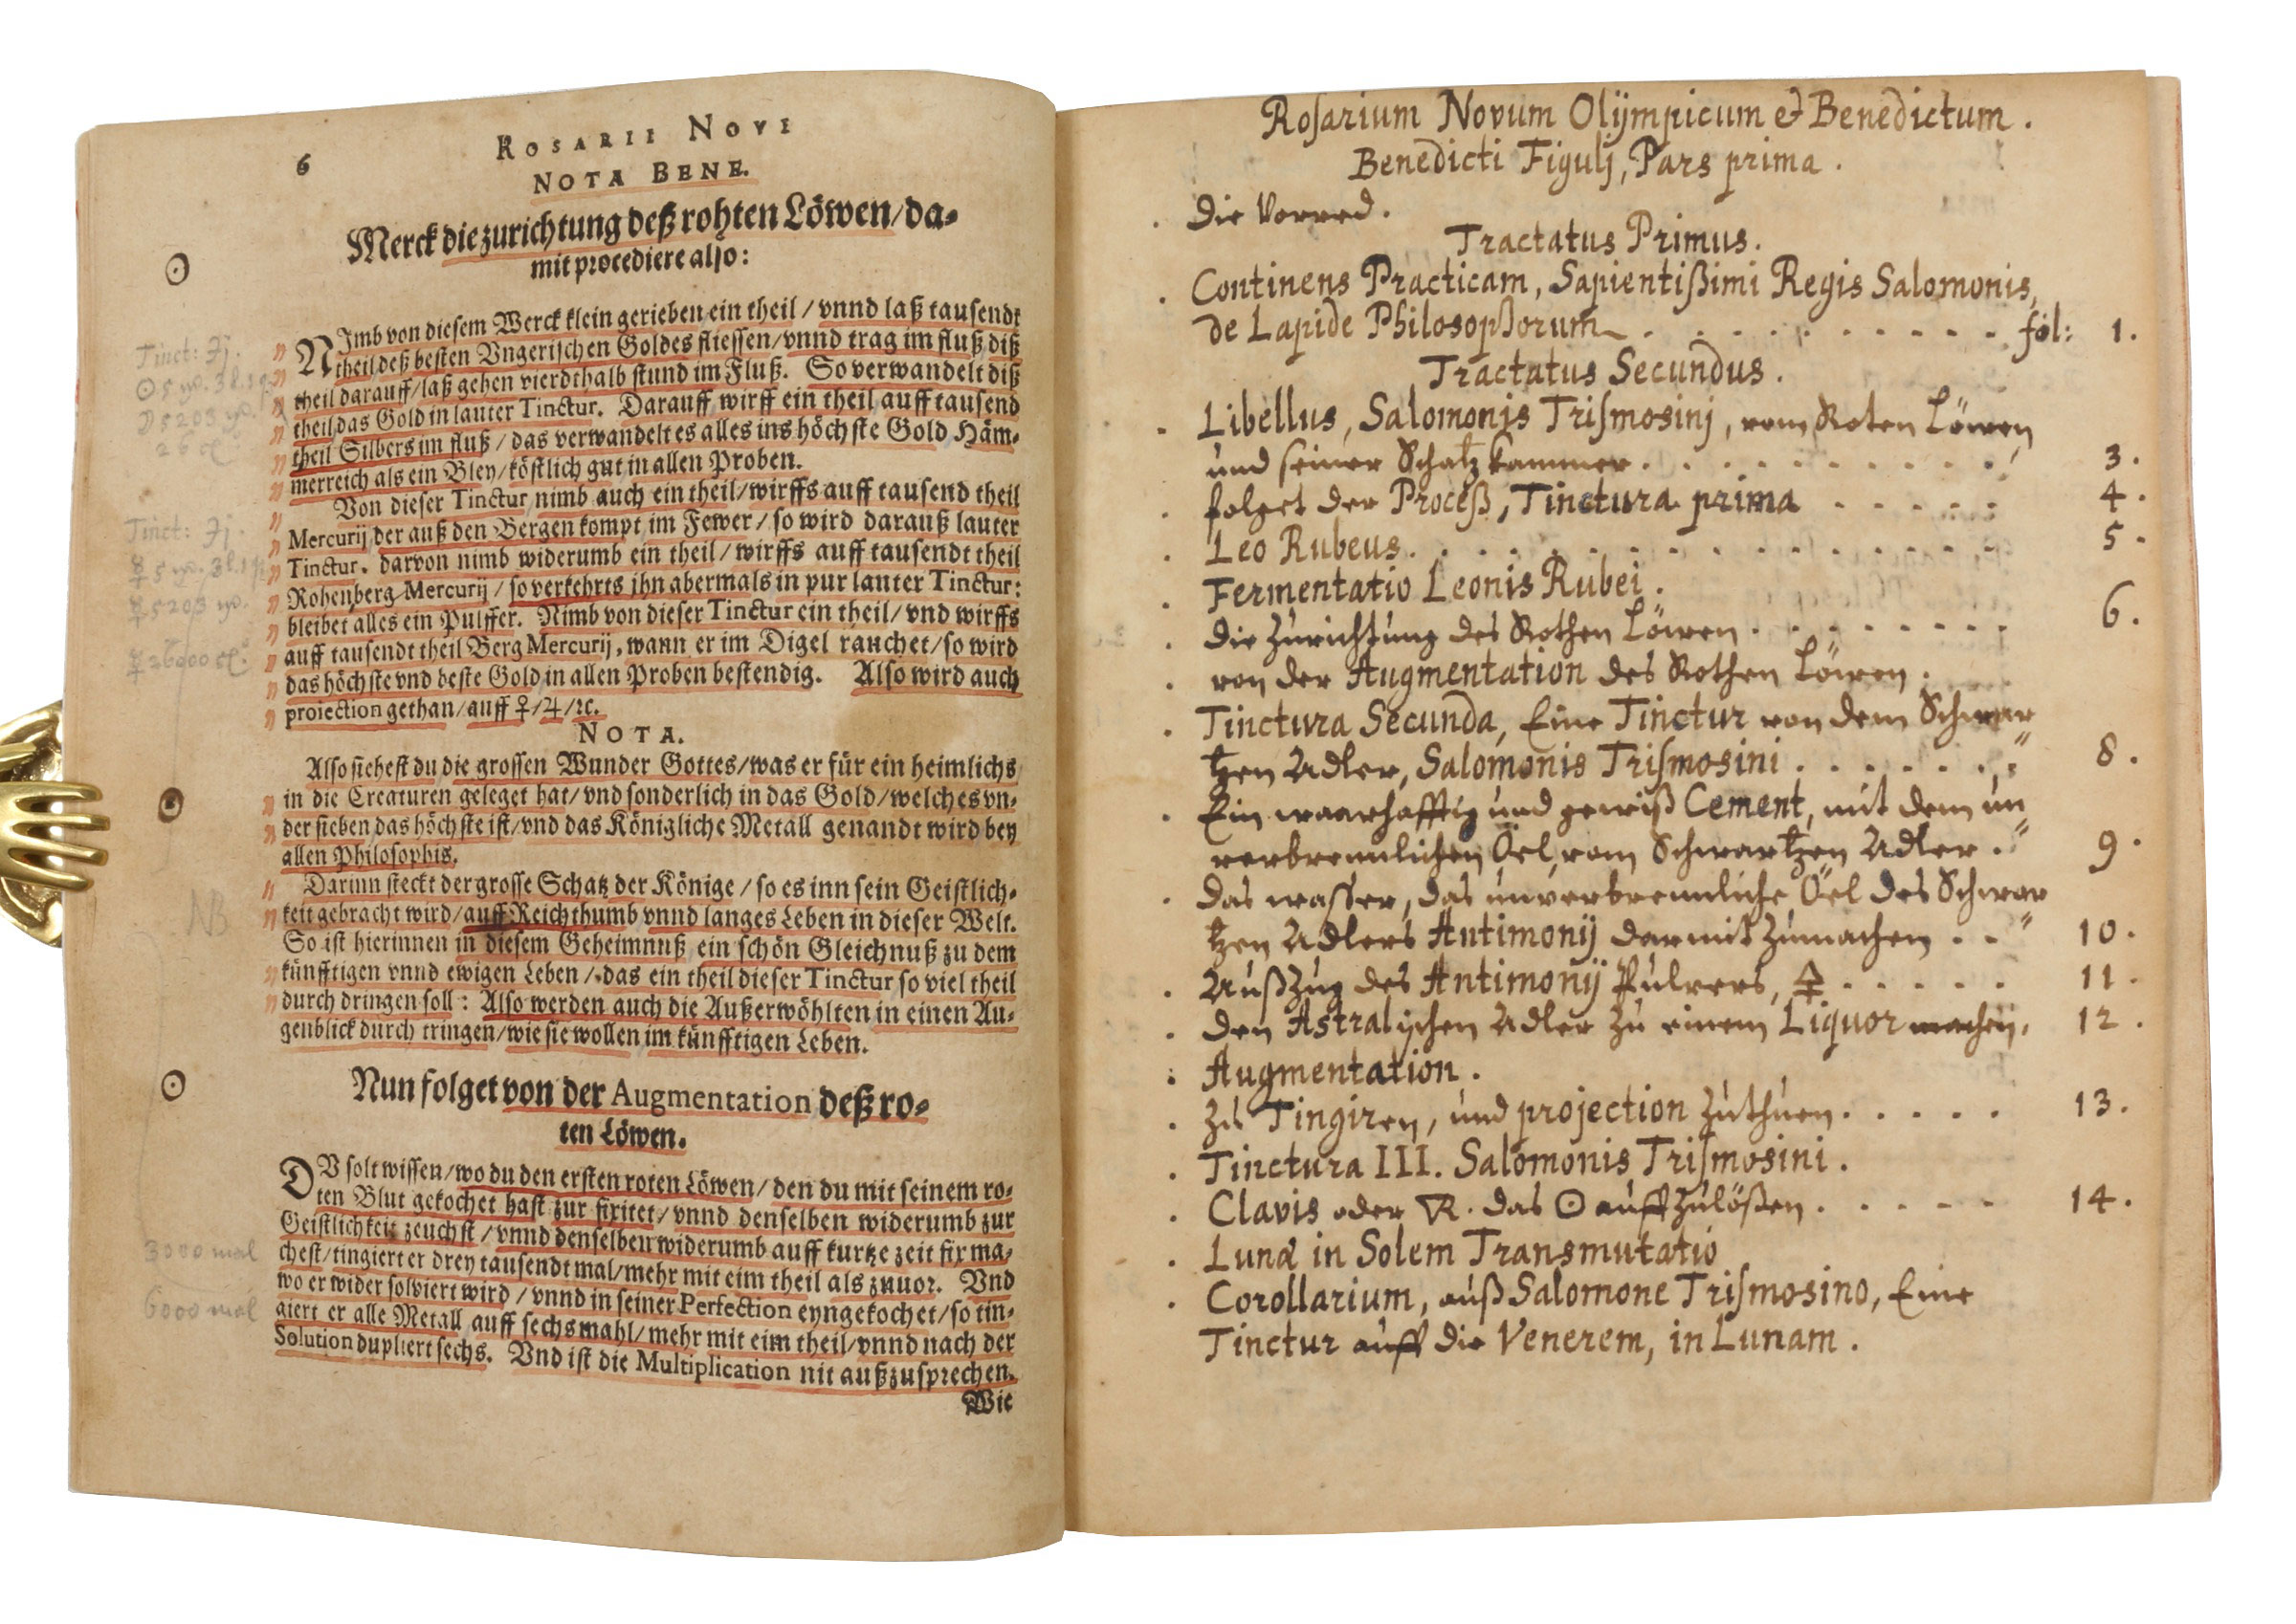 6
ROSARII NOVI
NOTA BENE.
Merck die zurichtung deß rohten Löwen/ da-
mit procediere also:
NImb von diesem Werck klein gerieben ein theil / vnnd laß tausendt
theil deß besten Vngerischen Goldes fliessen/vnnd trag im fluß diß
theil darauff/laß gehen vierdthalb stund im Fluß. So verwandelt diß
theil das Gold in lauter Tinctur. Darauff wirff ein theil auff tausend
theil Silbers im fluß / das verwandelt es alles ins höchste Gold Häm-
merreich als ein Bley/köstlich gut in allen Proben.
Von dieser Tinctur nimb auch ein theil/wirffs auff tausend theil
Mercurij der auß den Bergen kompt im Fewer / so wird darauß lauter
Tinctur. darvon nimb widerumb ein theil / wirffs auff tausendt theil
Rohenberg Mercurij / so verkehrts ihn abermals in pur lauter Tinctur:
bleibet alles ein Pulffer. Nimb von dieser Tinctur ein theil/ vnd wirffs
auff tausendt theil Berg Mercurij, wann er im Digel rauchet/so wird
das höchste vnd beste Gold in allen Proben bestendig. Also wird auch
proiection gethan/auff ♀/♃/ꝛc.
NOTA.
Also siehest du die grossen Wunder Gottes/was er für ein heimlichs
in die Creaturen geleget hat/ vnd sonderlich in das Gold/welches vn-
der sieben das höchste ist/vnd das Königliche Metall genandt wird bey
allen Philosophis.
Darinn steckt der grosse Schatz der Könige / so es inn sein Geistlich-
keit gebracht wird/auff Reichthumb vnnd langes Leben in dieser Welt.
So ist hierinnen in diesem Geheimnuß ein schön Gleichnuß zu dem
künfftigen vnnd ewigen Leben /.das ein theil dieser Tinctur so viel theil
durch dringen soll: Also werden auch die Außerwöhlten in einen Au-
genblick durch tringen/wie sie wollen im künfftigen Leben.
Nun folget von der Augmentation deß ro-
ten Löwen.
DV solt wissen/wo du den ersten roten Löwen/ den du mit seinem ro-
ten Blut gekochet hast zur fixitet/ vnnd denselben widerumb zur
Geistlichkeit zeuchst / vnnd denselben widerumb auff kurtze zeit fix ma-
chest/tingiert er drey tausendt mal/mehr mit eim theil als zuuor. Vnd
wo er wider solviert wird / vnnd in seiner Perfection eyngekochet/so tin-
giert er alle Metall auff sechsmahl/mehr mit eim theil/vnnd nach der
Solution dupliert sechs. Vnd ist die Multiplication nit außzusprechen.
Wie
☉
Tinct: Zj.
Tinct: Zj.
NB
☉
3000 mal
6000 mal
Rosarium Novum Olÿmpicum et Benedictum.
Benedicti Figulj, Pars prima.
Die Vorred.
Tractatus Primus.
Continens Practicam, Sapientißimi Regis Salomonis,
de Lapide Philosophorum . . . . . . . . . . . fol: 1.
Tractatus Secundus.
Libellus, Salomonis Trismosinj, vom Roten Löwen,
und seiner Schatzkammer . . . . . . . . . . 3.
folget der Proceß, Tinctura prima . . . . . 4.
Leo Rubeus . . . . . . . . . . . . . . . . 5.
Fermentatio Leonis Rubei.
Die Zurichtung des Rothen Löwen . . . . . . . . 6.
von der Augmentation des Rothen Löwen.
Tinctura Secunda, Eine Tinctur von dem Schwar
tzen Adler, Salomonis Trismosini . . . . . . . " 8.
Ein waarhafftig und gewiß Cement, mit dem un
verbrennlichen Öel, vom Schwartzen Adler . " 9.
Das wasser, das unverbrennliche Öel des Schwar
tzen Adlers Antimonij darmit zumachen . . " 10.
Außzug des Antimonij Pulvers, 🜍 . . . . . . 11.
Den Astralischen Adler zu einem Liquor machen. 12.
Augmentation.
Zu Tingiren, und projection zuthuen . . . . . 13.
Tinctura III. Salomonis Trismosini.
Clavis oder VR. das ☉ auffzulößen . . . . . 14.
Lunæ in Solem Transmutatio
Corollarium, auß Salomone Trismosino, Eine
Tinctur auff die Venerem, in Lunam.